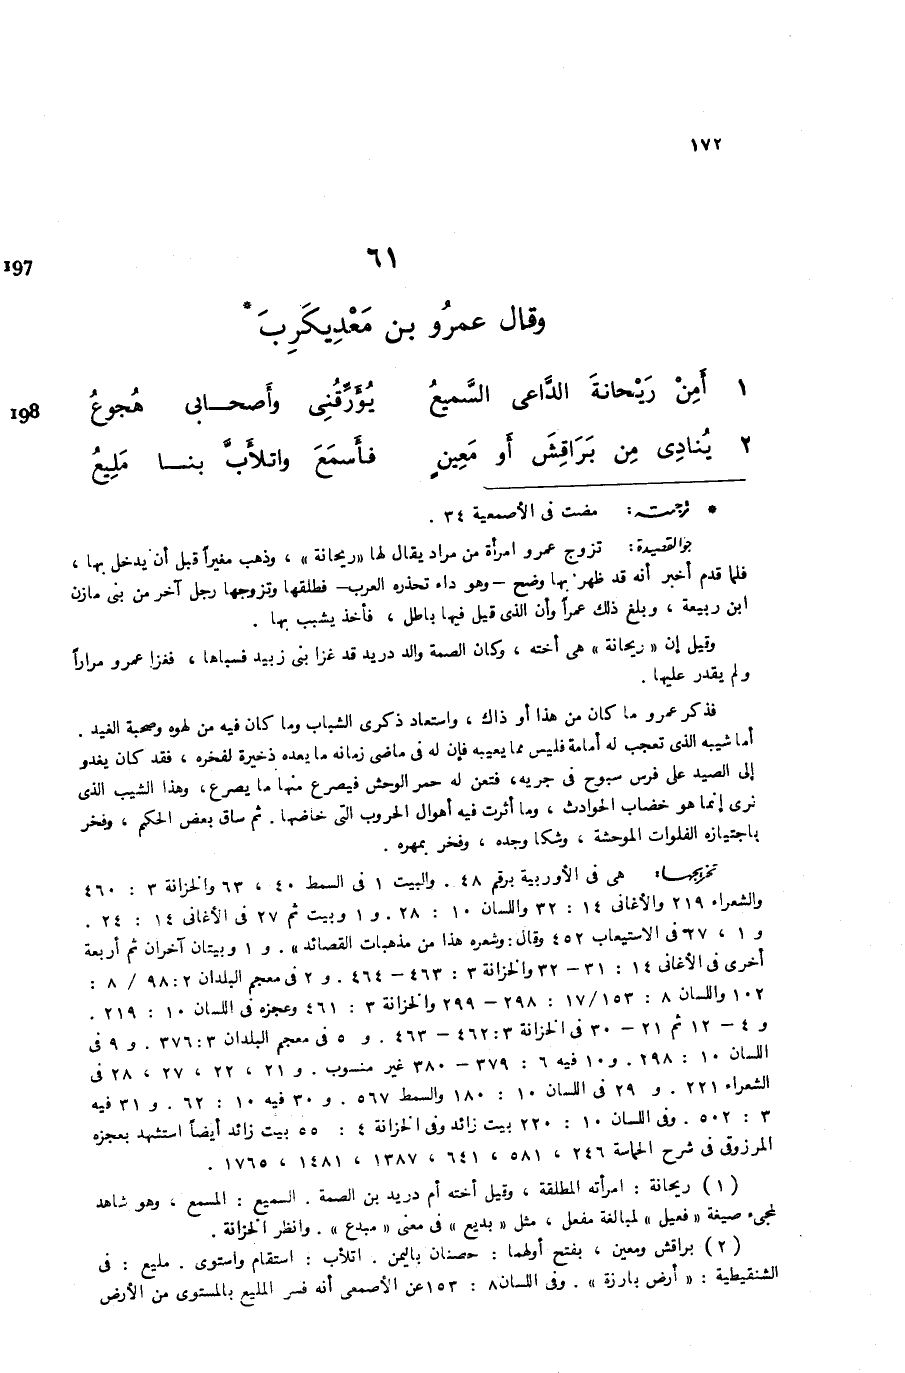 ١٧٢
٦١
197
وقال عمرُو بن مَعْدِيكَرِبَ *
١ أَمِنْ رَيْحانةَ الدَّاعى السَّميعُ يُؤَرِّقُنِى وأَصحــابى هُجوعُ
198
٢ يُنادِى مِن بَرَاقِشَ أَو مَعِينٍ فأَسمَعَ واتلأَبَّ بنــا مَلِيعُ
* ترجمته: مضت فى الأصمعية ٣٤ .
جو القصيدة: تزوج عمرو امرأة من مراد يقال لها «ريحانة» ، وذهب مغيراً قبل أن يدخل بها ،
فلما قدم أخبر أنه قد ظهر بها وضح – وهو داء تحذره العرب – فطلقها وتزوجها رجل آخر من بنى مازن
ابن ربيعة ، وبلغ ذلك عمراً وأن الذى قيل فيها باطل ، فأخذ يشبب بها .
وقيل إن « ريحانة » هى أخته ، وكان الصمة والد دريد قد غزا بنى زبيد فسباها ، فغزا عمرو مراراً
ولم يقدر عليها .
فذكر عمرو ما كان من هذا أو ذاك ، واستعاد ذكرى الشباب وما كان فيه من لهوه وصحبة الغيد .
أما شيبه الذى تعجب له أمامة فليس مما يعيبه فإن له فى ماضى زمانه ما يعده ذخيرة لفخره ، فقد كان يغدو
إلى الصيد على فرس سبوح فى جريه ، فتعن له حمر الوحش فيصرع منها ما يصرع ، وهذا الشيب الذى
نرى إنما هو خضاب الحوادث ، وما أثرت فيه أهوال الحروب التى خاضها . ثم ساق بعض الحكم ، وفخر
باجتيازه الفلوات الموحشة ، وشكا وجده ، وفخر بمهره .
تخريجها: هى فى الأوربية برقم ٤٨ . والبيت ١ فى السمط ٤٠ ، ٦٣ والخزانة ٣ : ٤٦٠
والشعراء ٢١٩ والأغانى ١٤ : ٣٢ واللسان ١٠ : ٢٨ . و ١ وبيت ثم ٢٧ فى الأغانى ١٤ : ٢٤ .
و ١ ، ٢٧ فى الاستيعاب ٤٥٢ وقال : وشعره هذا من مذهبات القصائد » . و ١ وبيتان آخران ثم أربعة
أخرى فى الأغانى ١٤ : ٣١ – ٣٢ والخزانة ٣ : ٤٦٣ – ٤٦٤ . و ٢ فى معجم البلدان ٢ : ٩٨ / ٨ :
١٠٢ واللسان ٨ : ١٥٣ / ١٧ : ٢٩٨ – ٢٩٩ والخزانة ٣ : ٤٦١ وعجزه فى اللسان ١٠ : ٢١٩ .
و ٤ – ١٢ ثم ٢١ – ٣٠ فى الخزانة ٣ : ٤٦٢ – ٤٦٣ . و ٥ فى معجم البلدان ٣ : ٣٧٦ . و ٩ فى
اللسان ١٠ : ٢٩٨ . و ١٠ فيه ٦ : ٣٧٩ – ٣٨٠ غير منسوب . و ٢١ ، ٢٢ ، ٢٧ ، ٢٨ فى
الشعراء ٢٢١ . و ٢٩ فى اللسان ١٠ : ١٨٠ والسمط ٥٦٧ . و ٣٠ فيه ١٠ : ٦٢ . و ٣١ فيه
٣ : ٥٠٢ . وفى اللسان ١٠ : ٢٢٠ بيت زائد وفى الخزانة ٤ : ٥٥ بيت زائد أيضاً استشهد بعجزه
المرزوقى فى شرح الحماسة ٢٤٦ ، ٥٨١ ، ٦٤١ ، ١٣٨٧ ، ١٤٨١ ، ١٧٦٥ .
(١) ريحانة : امرأته المطلقة ، وقيل أخته أم دريد بن الصمة . السميع : المسمع ، وهو شاهد
لمجىء صيغة « فعيل » لمبالغة مفعل ، مثل « بديع » فى معنى « مبدع » . وانظر الخزانة .
(٢) براقش ومعين ، بفتح أولهما : حصنان باليمن . اتلأب : استقام واستوى . مليع : فى
الشنقيطية : « أرض بارزة » . وفى اللسان ٨ : ١٥٣ عن الأصمعى أنه فسر المليع بالمستوى من الأرض